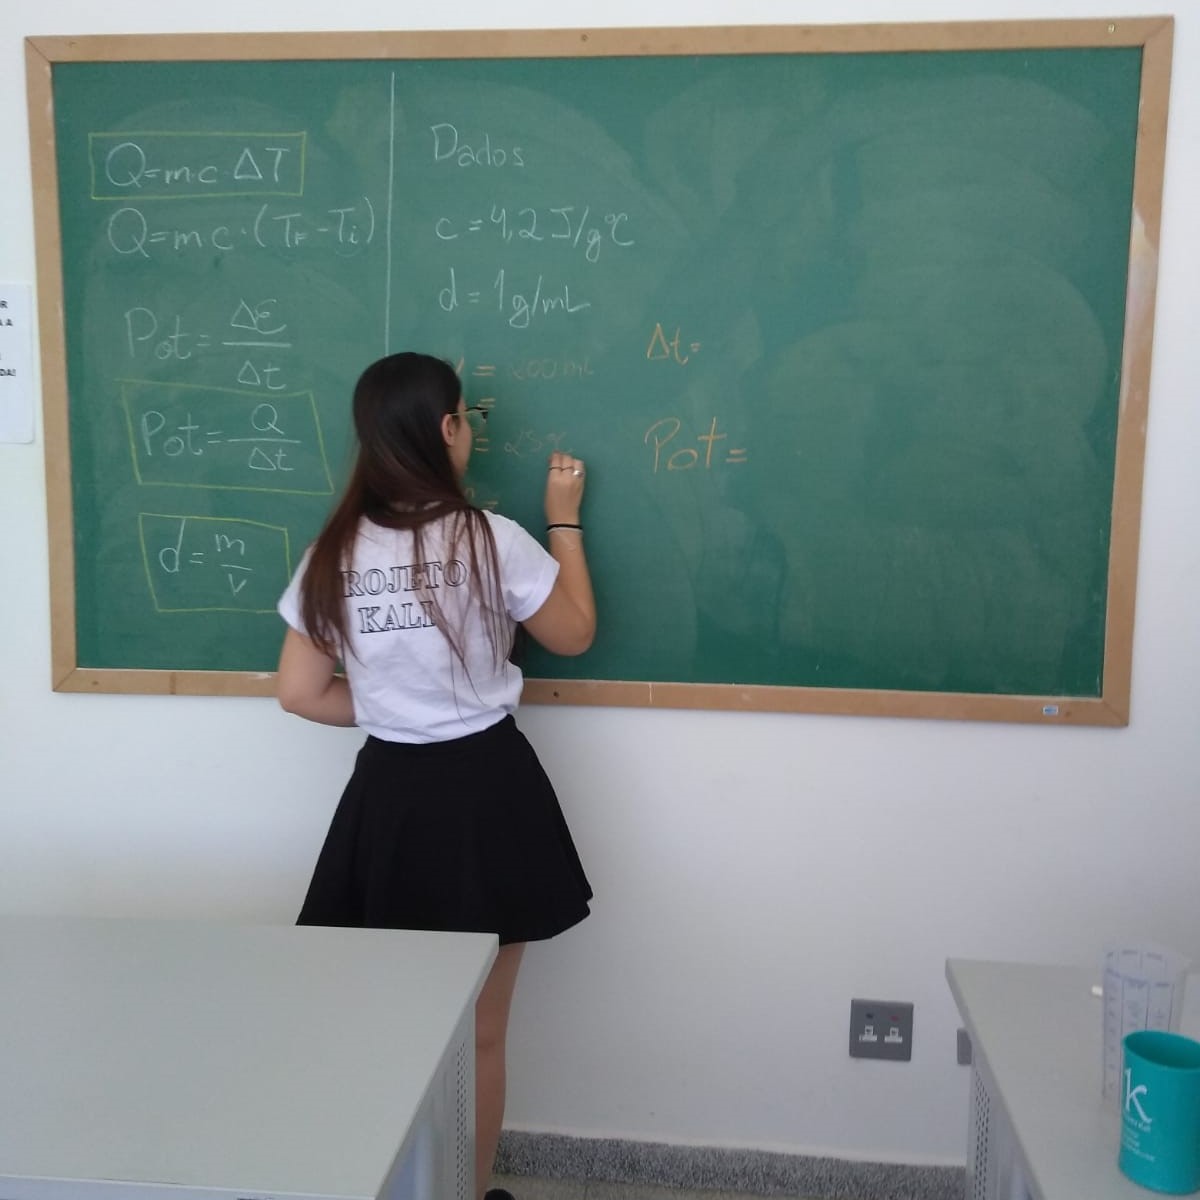 Q=m.c.ΔT
Q=m.c.(TF-Ti)
Pot=ΔE/Δt
Pot=Q/Δt
d=m/v
Dados
c=4,2J/g°C
d=1g/mL
V=200mL
=
=25°C
=
Δt=
Pot=
ROJETO
KALI
R
A A
DA!
k